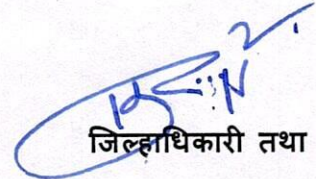 जिल्हाधिकारी तथा